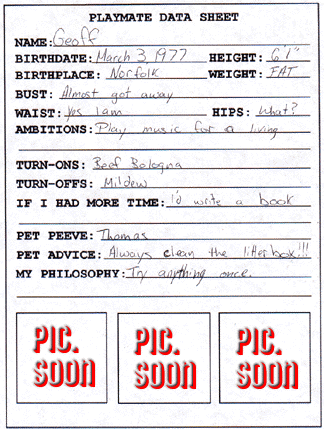 PLAYMATE DATA SHEET
NAME: Geoff
BIRTHDATE: March 3, 1977 HEIGHT: 6'1"
BIRTHPLACE: Norfolk WEIGHT: FAT
BUST: Almost got away
WAIST: yes I am HIPS: What?
AMBITIONS: Play music for a living
TURN-ONS: Beef Bologna
TURN-OFFS: Mildew
IF I HAD MORE TIME: I'd write a book
PET PEEVE: Thomas
PET ADVICE: Always clean the litterbox!!!
MY PHILOSOPHY: Try anything once.
PIC. PIC. PIC.
SOON SOON SOON